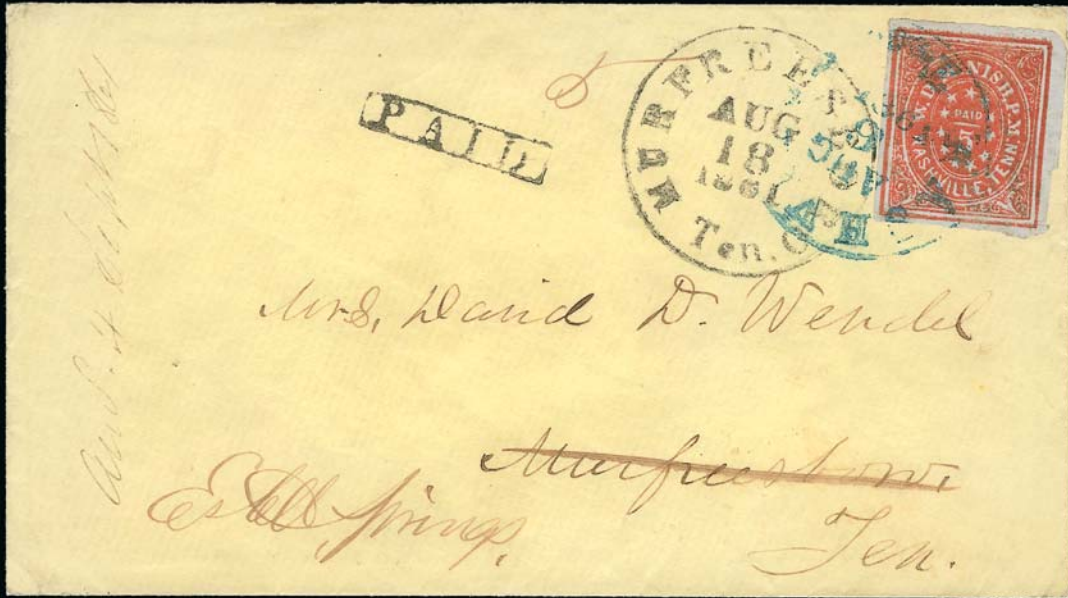 PAID
5
MURFREESBORO Ten.
AUG
18
1861
W.D. McNISH, P.M.
PAID
5
NASHVILLE, TENN.
Mrs. David D. Wendel
Murfreesboro,
Estill Springs,
Ten.